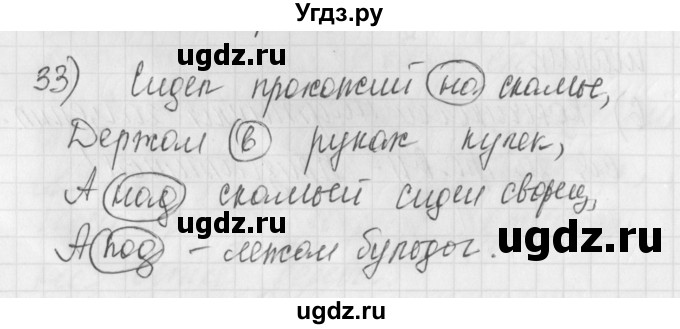 Угdz.ру
33) Сидел прохожий на скамье,
ugdz.ru ugdz.ru
Держал в руках кулек,
ugdz.ru
А над скамьей сидел скворец,
ugdz.ru ugdz.ru
А под - лежал бульдог.
ugdz.ru